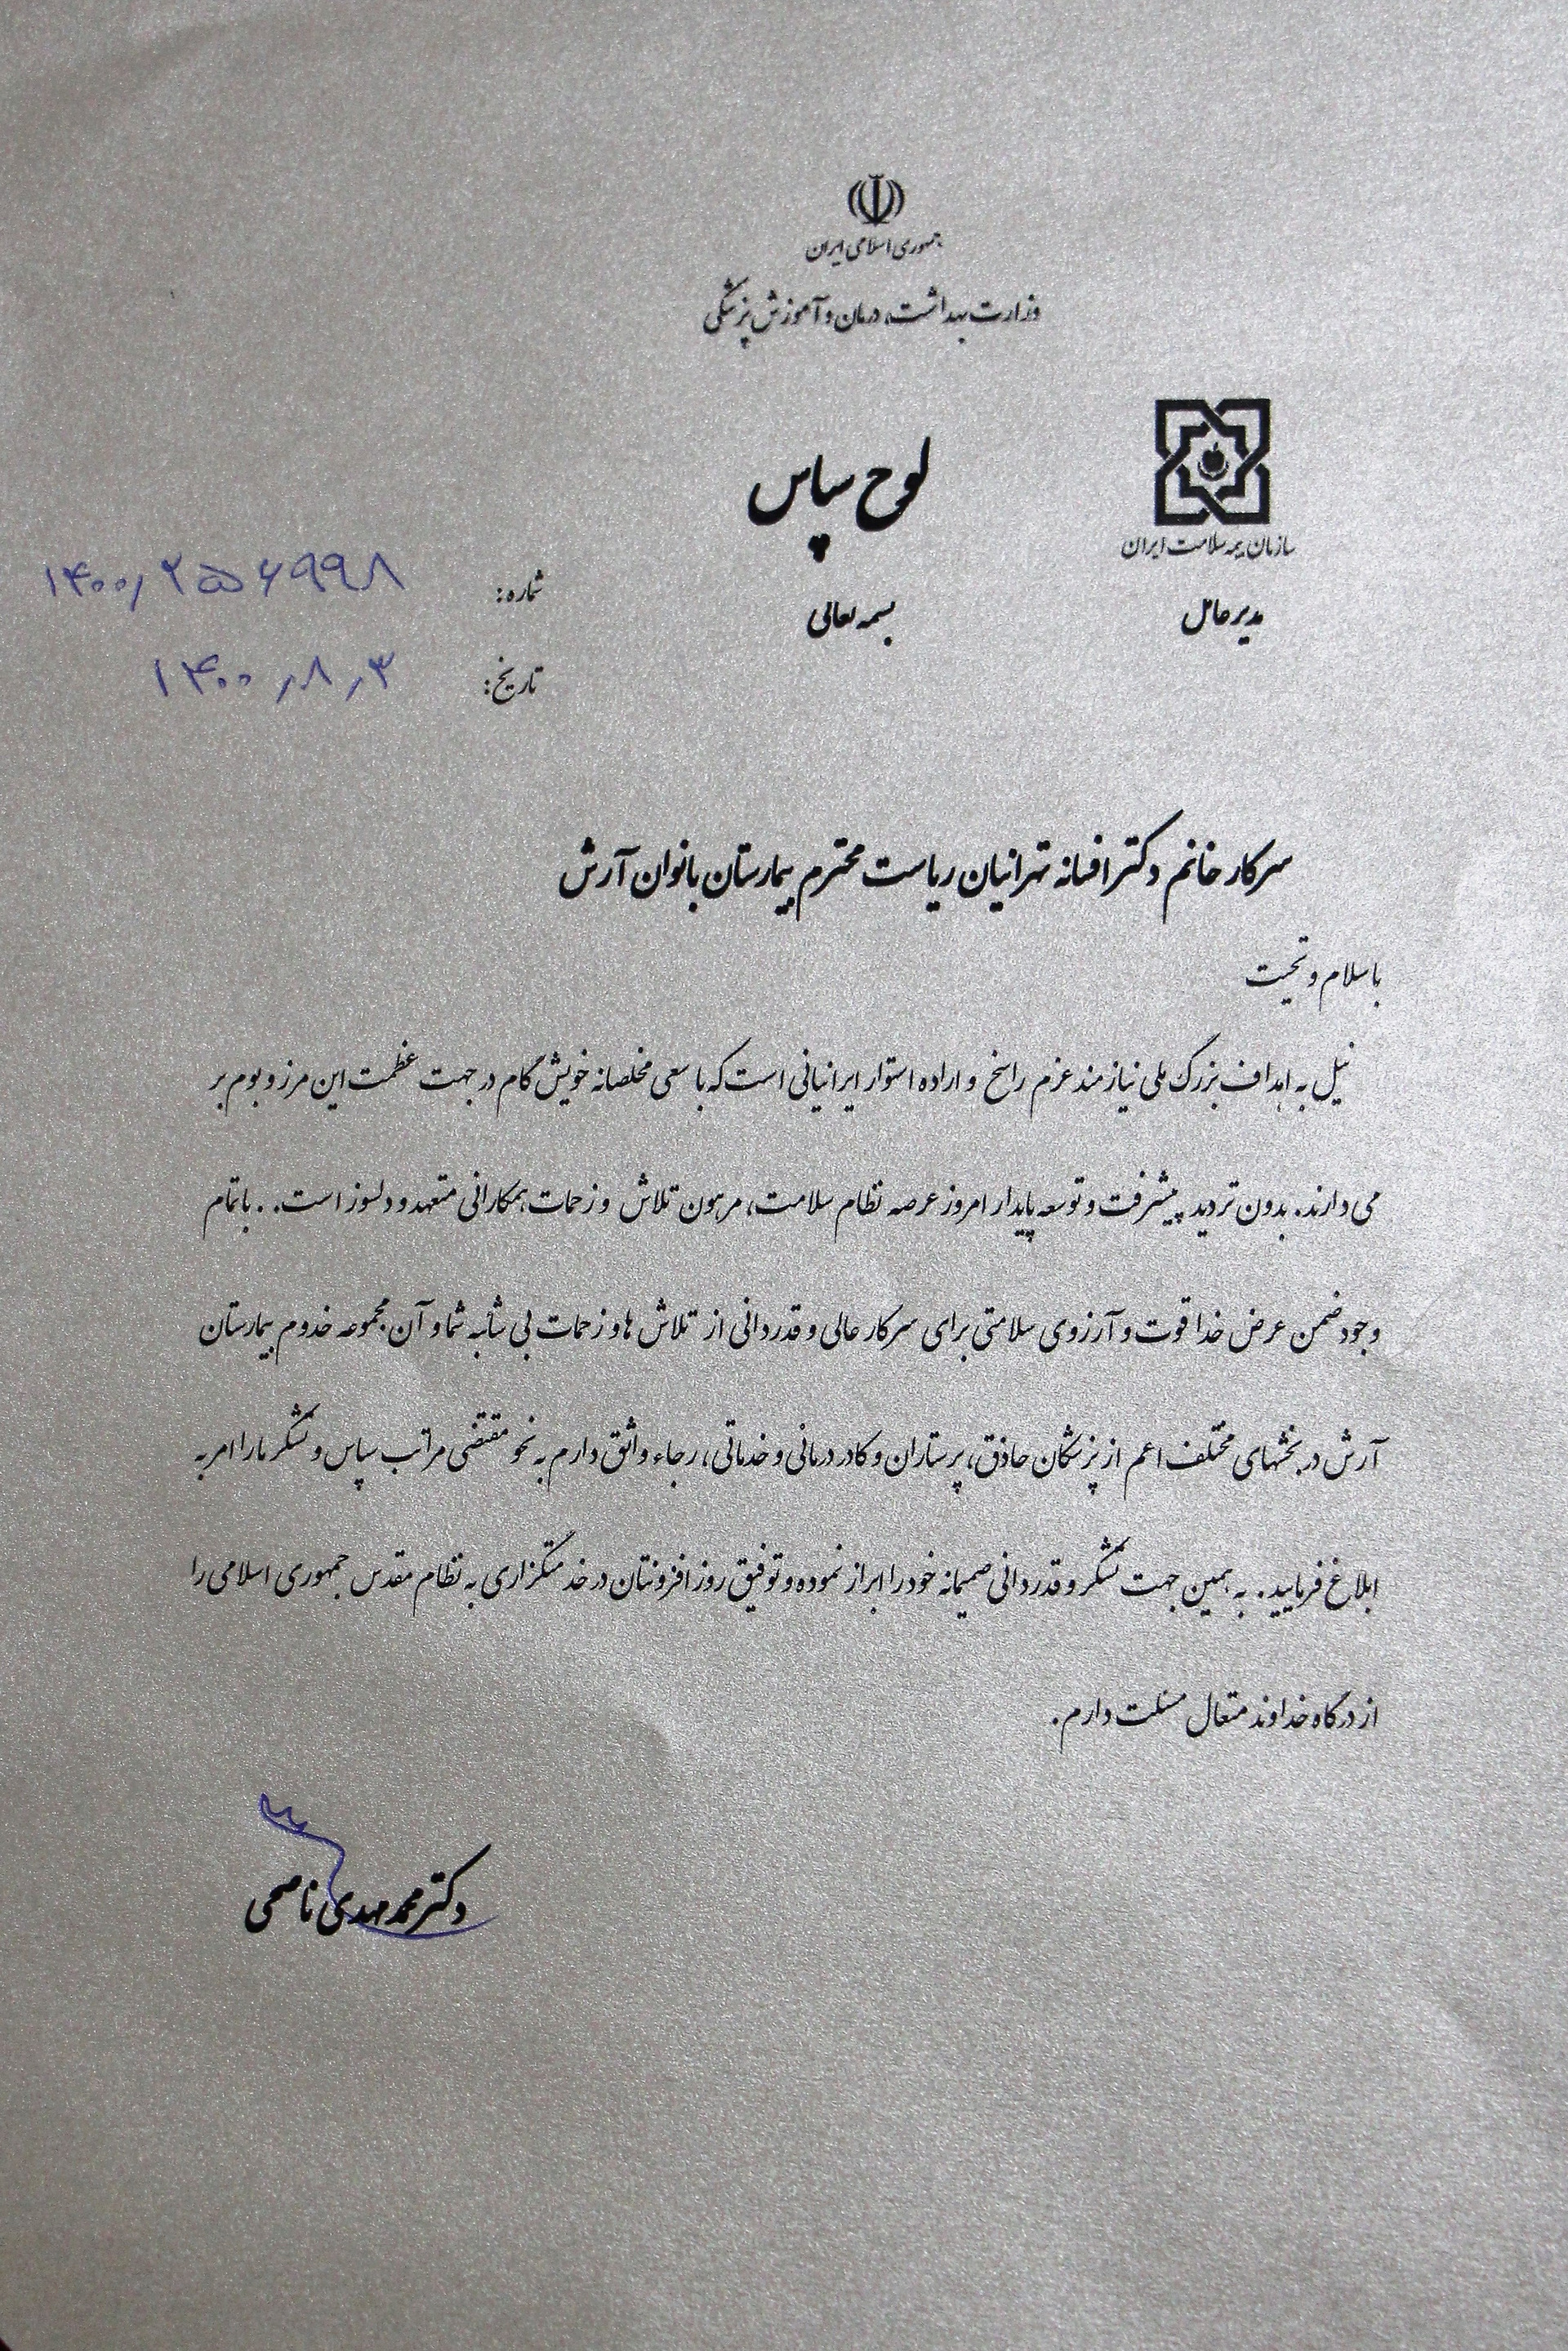 جمهوری اسلامی ایران
وزارت بهداشت، درمان و آموزش پزشکی
لوح سپاس
سازمان بیمه سلامت ایران
مدیرعامل
بسمه تعالی
شماره: ۱۴۰۰/۲۵۶۹۹۸
تاریخ: ۱۴۰۰/۸/۳
سرکار خانم دکتر افسانه تهرانیان ریاست محترم بیمارستان بانوان آرش
با سلام و تحیت
نیل به اهداف بزرگ ملی نیازمند عزم راسخ و اراده استوار ایرانیانی است که با سعی مخلصانه خویش گام در جهت عظمت این مرز و بوم بر
می دارند. بدون تردید پیشرفت و توسعه پایدار امروز عرصه نظام سلامت، مرهون تلاش و زحمات همکارانی متعهد و دلسوز است. . با تمام
وجود ضمن عرض خدا قوت و آرزوی سلامتی برای سرکار عالی و قدردانی از تلاش ها و زحمات بی شائبه شما و آن مجموعه خدوم بیمارستان
آرش در بخشهای مختلف اعم از پزشکان حاذق، پرستاران و کادر درمانی و خدماتی، رجاء واثق دارم به نحو مقتضی مراتب سپاس و تشکر ما را امر به
ابلاغ فرمایید. به همین جهت تشکر و قدردانی صمیمانه خود را ابراز نموده و توفیق روز افزونتان در خدمتگزاری به نظام مقدس جمهوری اسلامی را
از درگاه خداوند متعال مسئلت دارم.
دکتر محمد مهدی ناصحی